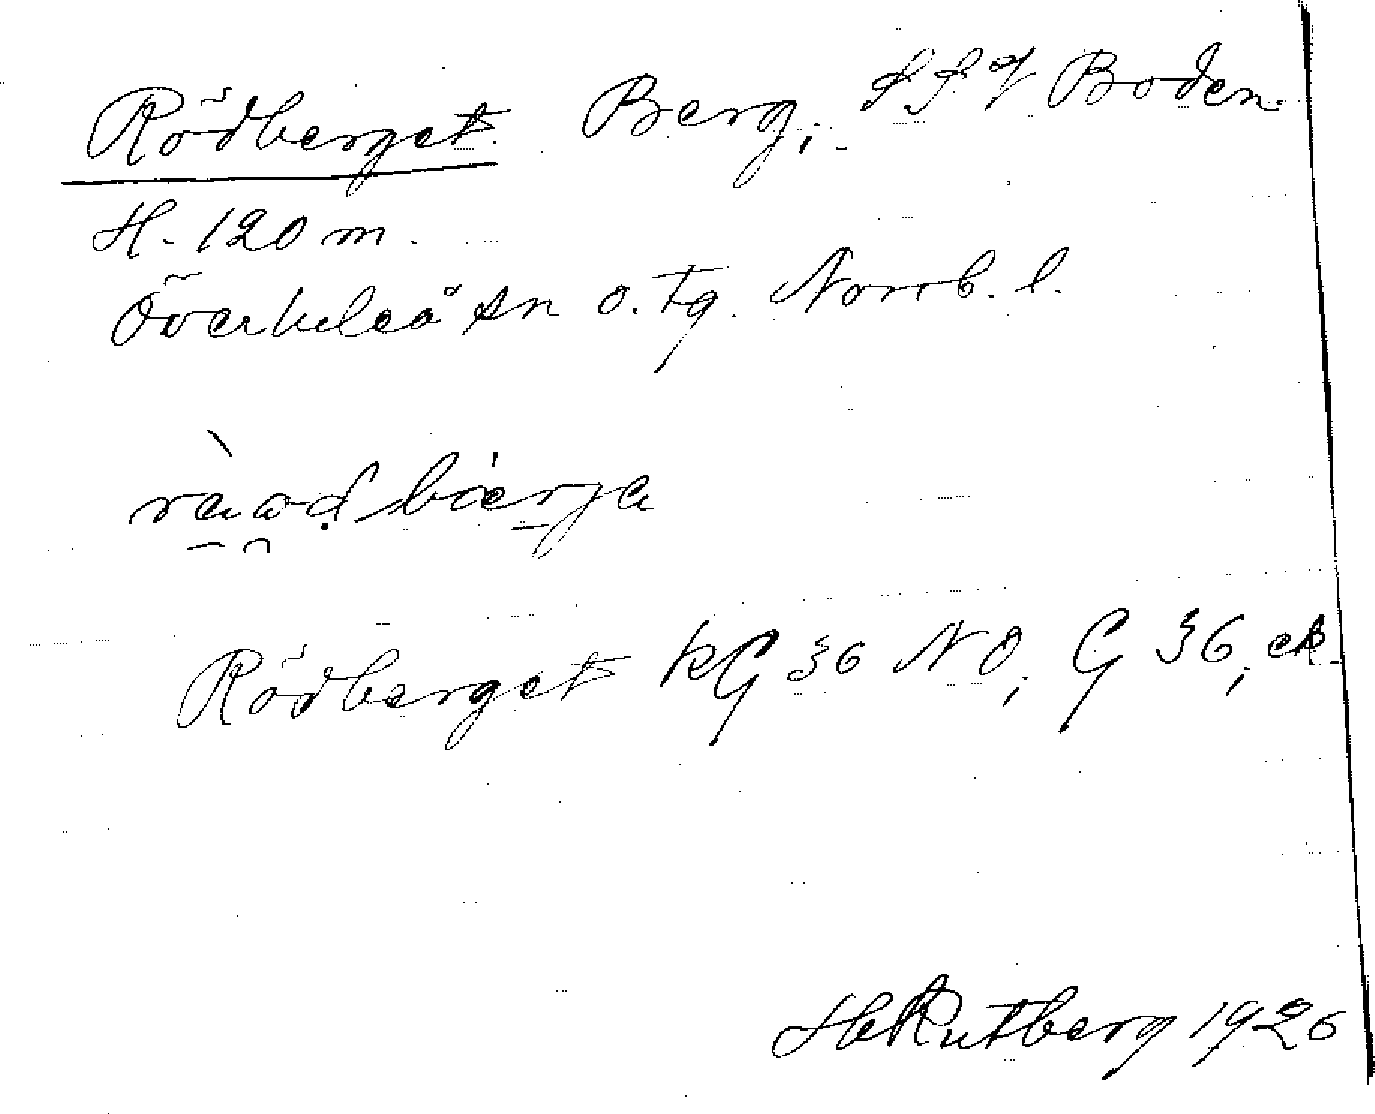 Rödberget. Berg, SSV Boden.
H. 120 m.
Överluleå sn o. tg. Norrb. l.
Rödberget kG 36 NO, G 36, ek.
H Rutberg 1926